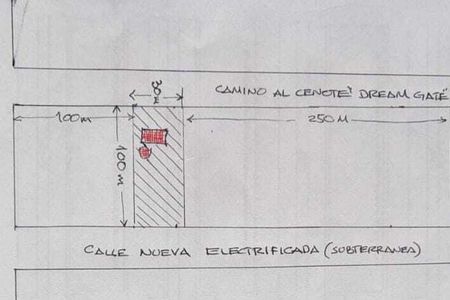 30 m
CAMINO AL CENOTE DREAM GATE
100m
250 M
100 m
CALLE NUEVA ELECTRIFICADA (SUBTERRANEA)